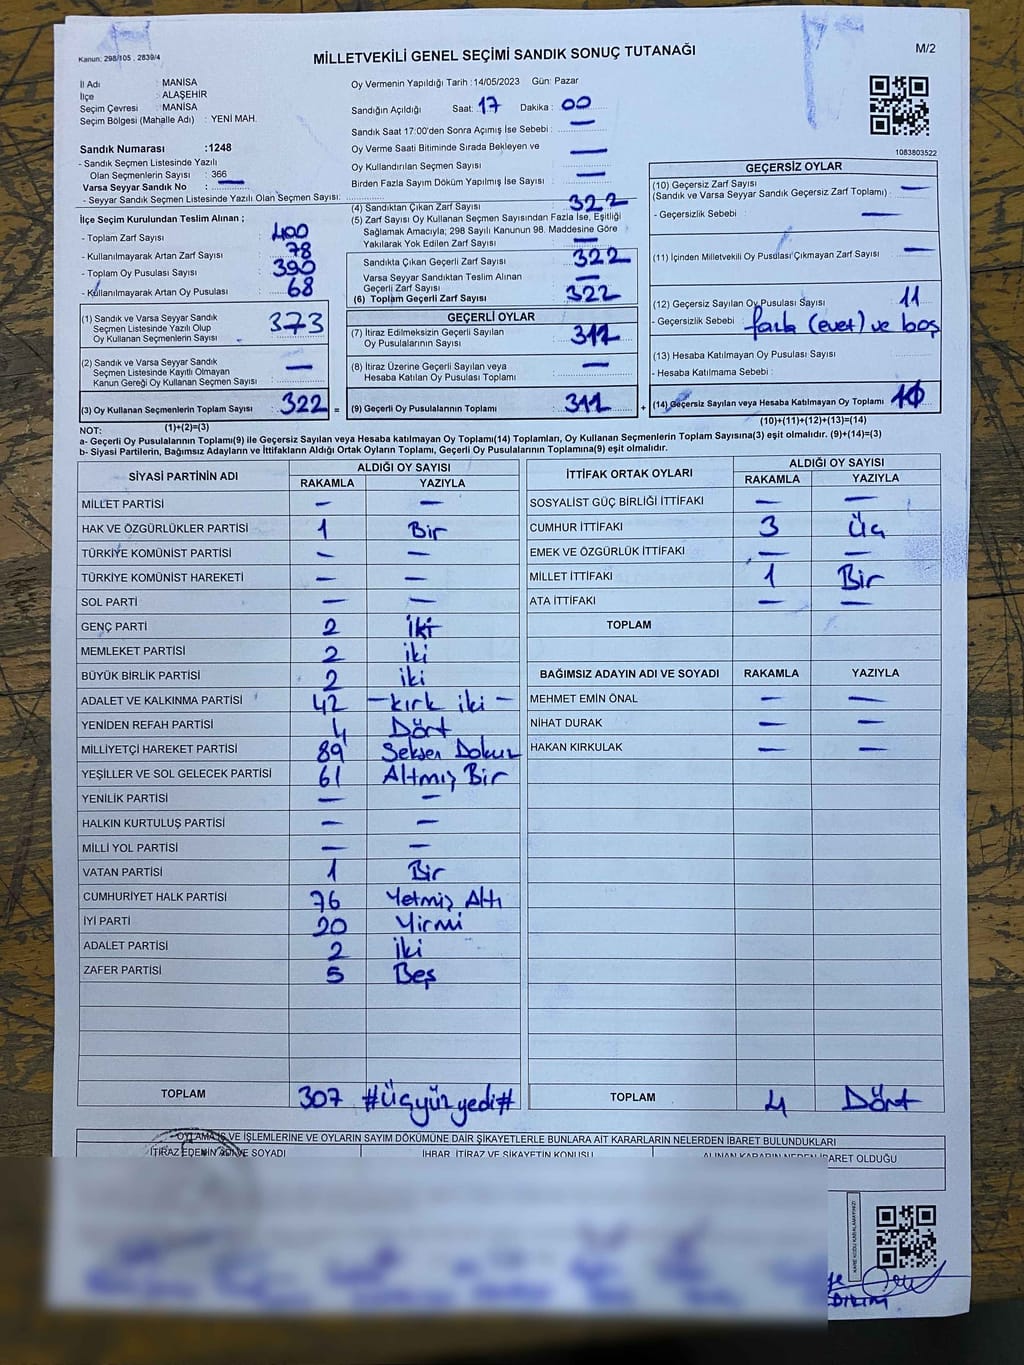 Kanun: 298/105 , 2839/4
MİLLETVEKİLİ GENEL SEÇİMİ SANDIK SONUÇ TUTANAĞI
M/2
İl Adı : MANİSA
İlçe : ALAŞEHİR
Seçim Çevresi : MANİSA
Seçim Bölgesi (Mahalle Adı) : YENİ MAH.
Oy Vermenin Yapıldığı Tarih : 14/05/2023 Gün: Pazar
Sandığın Açıldığı Saat: 17 Dakika : 00
Sandık Saat 17:00'den Sonra Açımış İse Sebebi : —
Oy Verme Saati Bitiminde Sırada Bekleyen ve
Oy Kullandırılan Seçmen Sayısı —
Birden Fazla Sayım Döküm Yapılmış İse Sayısı —
1083803522
Sandık Numarası :1248
- Sandık Seçmen Listesinde Yazılı
Olan Seçmenlerin Sayısı : 366
Varsa Seyyar Sandık No : —
- Seyyar Sandık Seçmen Listesinde Yazılı Olan Seçmen Sayısı:
İlçe Seçim Kurulundan Teslim Alınan ;
- Toplam Zarf Sayısı 400
- Kullanılmayarak Artan Zarf Sayısı 78
- Toplam Oy Pusulası Sayısı 390
- Kullanılmayarak Artan Oy Pusulası 68
(1) Sandık ve Varsa Seyyar Sandık
Seçmen Listesinde Yazılı Olup
Oy Kullanan Seçmenlerin Sayısı 373
(2) Sandık ve Varsa Seyyar Sandık
Seçmen Listesinde Kayıtlı Olmayan
Kanun Gereği Oy Kullanan Seçmen Sayısı —
(3) Oy Kullanan Seçmenlerin Toplam Sayısı 322 =
(1)+(2)=(3)
(4) Sandıktan Çıkan Zarf Sayısı 322
(5) Zarf Sayısı Oy Kullanan Seçmen Sayısından Fazla İse, Eşitliği
Sağlamak Amacıyla; 298 Sayılı Kanunun 98. Maddesine Göre
Yakılarak Yok Edilen Zarf Sayısı —
Sandıkta Çıkan Geçerli Zarf Sayısı 322
Varsa Seyyar Sandıktan Teslim Alınan
Geçerli Zarf Sayısı —
(6) Toplam Geçerli Zarf Sayısı 322
GEÇERLİ OYLAR
(7) İtiraz Edilmeksizin Geçerli Sayılan
Oy Pusulalarının Sayısı 311
(8) İtiraz Üzerine Geçerli Sayılan veya
Hesaba Katılan Oy Pusulası Toplamı —
(9) Geçerli Oy Pusulalarının Toplamı 311 +
GEÇERSİZ OYLAR
(10) Geçersiz Zarf Sayısı
(Sandık ve Varsa Seyyar Sandık Geçersiz Zarf Toplamı) —
- Geçersizlik Sebebi —
(11) İçinden Milletvekili Oy Pusulası Çıkmayan Zarf Sayısı —
(12) Geçersiz Sayılan Oy Pusulası Sayısı 11
- Geçersizlik Sebebi fazla (evet) ve boş
(13) Hesaba Katılmayan Oy Pusulası Sayısı
- Hesaba Katılmama Sebebi :
(14) Geçersiz Sayılan veya Hesaba Katılmayan Oy Toplamı
(10)+(11)+(12)+(13)=(14)
NOT:
a- Geçerli Oy Pusulalarının Toplamı(9) ile Geçersiz Sayılan veya Hesaba katılmayan Oy Toplamı(14) Toplamları, Oy Kullanan Seçmenlerin Toplam Sayısına(3) eşit olmalıdır. (9)+(14)=(3)
b- Siyasi Partilerin, Bağımsız Adayların ve İttifakların Aldığı Ortak Oyların Toplamı, Geçerli Oy Pusulalarının Toplamına(9) eşit olmalıdır.
SİYASİ PARTİNİN ADI ALDIĞI OY SAYISI
RAKAMLA YAZIYLA
MİLLET PARTİSİ — —
HAK VE ÖZGÜRLÜKLER PARTİSİ 1 Bir
TÜRKİYE KOMÜNİST PARTİSİ — —
TÜRKİYE KOMÜNİST HAREKETİ — —
SOL PARTİ — —
GENÇ PARTİ 2 İki
MEMLEKET PARTİSİ 2 iki
BÜYÜK BİRLİK PARTİSİ 2 iki
ADALET VE KALKINMA PARTİSİ 42 -kırk iki-
YENİDEN REFAH PARTİSİ 4 Dört
MİLLİYETÇİ HAREKET PARTİSİ 89 Seksen Dokuz
YEŞİLLER VE SOL GELECEK PARTİSİ 61 Altmış Bir
YENİLİK PARTİSİ — —
HALKIN KURTULUŞ PARTİSİ — —
MİLLİ YOL PARTİSİ — —
VATAN PARTİSİ 1 Bir
CUMHURİYET HALK PARTİSİ 76 Yetmiş Altı
İYİ PARTİ 20 Yirmi
ADALET PARTİSİ 2 İki
ZAFER PARTİSİ 5 Beş
TOPLAM 307 #Üçyüz yedi#
İTTİFAK ORTAK OYLARI ALDIĞI OY SAYISI
RAKAMLA YAZIYLA
SOSYALIST GÜÇ BİRLİĞİ İTTİFAKI — —
CUMHUR İTTİFAKI 3 Üç
EMEK VE ÖZGÜRLÜK İTTİFAKI — —
MİLLET İTTİFAKI 1 Bir
ATA İTTİFAKI — —
TOPLAM
BAĞIMSIZ ADAYIN ADI VE SOYADI RAKAMLA YAZIYLA
MEHMET EMİN ÖNAL — —
NİHAT DURAK — —
HAKAN KIRKULAK — —
TOPLAM 4 Dört
OYLAMA İŞ VE İŞLEMLERİNE VE OYLARIN SAYIM DÖKÜMÜNE DAİR ŞİKAYETLERLE BUNLARA AİT KARARLARIN NELERDEN İBARET BULUNDUKLARI
İTİRAZ EDENİN ADI VE SOYADI İHBAR, İTİRAZ VE ŞİKAYETİN KONUSU ALINAN KARARIN NEDEN İBARET OLDUĞU